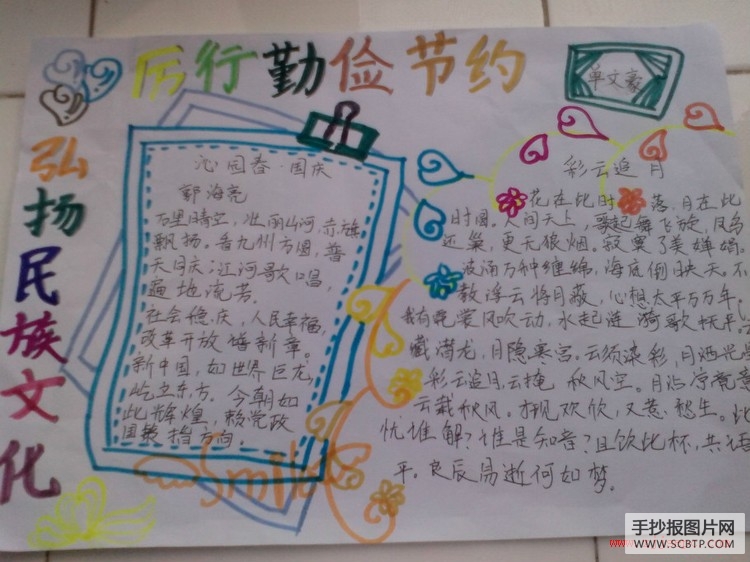 厉行勤俭节约
单文豪
弘扬民族文化
沁园春·国庆
郭海亮
万里晴空,壮丽山河,赤旗
飘扬。看九州方圆,普
天同庆;江河歌唱,
遍地流芳。
社会稳庆,人民幸福,
改革开放谱新章。
新中国,如世界巨龙,
屹立东方。今朝如
此辉煌,赖党政
国策指方向。
彩云追月
花在此时落,月在此
时圆。人间天上,歌起舞飞旋,凤鸟
还巢,更无狼烟。寂寞了美婵娟。
波涌万种缠绵,海底倒映天。不
教浮云将月蔽,心想太平万万年。
我有霓裳风吹动,水起涟漪歌
潜龙,月隐寒宫。云须染彩,月洒光
彩云追月,云掩秋风空。月
云载秋风。才现欢欣,又惹愁生。
忧谁解?谁是知音?且饮此杯,共
平。良辰易逝何如梦。
Smile
手抄报图片网
WWW.SCBTP.COM